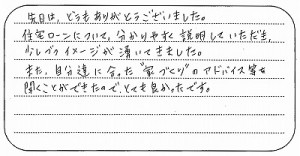 先日は、どうもありがとうございました。
住宅ローンについて、分かりやすく説明していただき、
少しづつイメージが湧いてきました。
また、自分達に合った"家づくり"のアドバイス等を
聞くことができたので、とても良かったです。